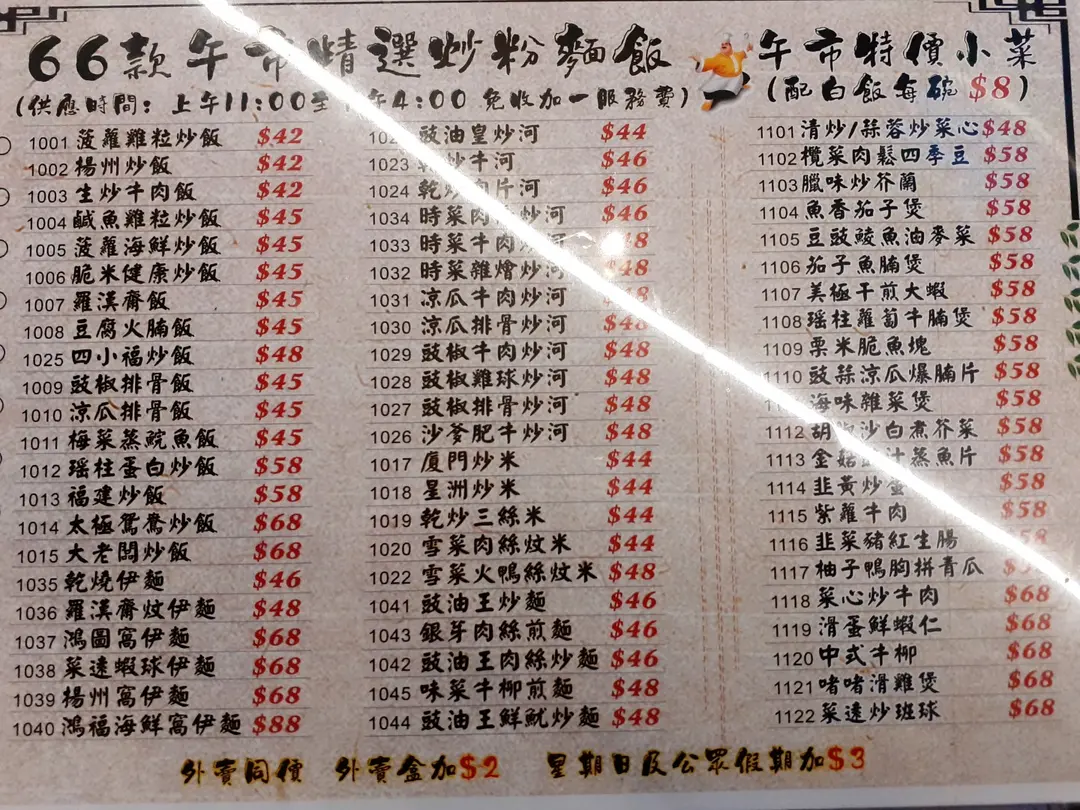 66款午市精選炒粉麵飯
(供應時間：上午11:00至 午4:00 免收加一服務費)
1001 菠蘿雞粒炒飯 $42
1002 揚州炒飯 $42
1003 生炒牛肉飯 $42
1004 鹹魚雞粒炒飯 $45
1005 菠蘿海鮮炒飯 $45
1006 脆米健康炒飯 $45
1007 羅漢齋飯 $45
1008 豆腐火腩飯 $45
1025 四小福炒飯 $48
1009 豉椒排骨飯 $45
1010 凉瓜排骨飯 $45
1011 梅菜蒸鯇魚飯 $45
1012 瑶柱蛋白炒飯 $58
1013 福建炒飯 $58
1014 太極鴛鴦炒飯 $68
1015 大老闆炒飯 $68
1035 乾燒伊麵 $46
1036 羅漢齋炆伊麵 $48
1037 鴻圖窩伊麵 $68
1038 菜遠蝦球伊麵 $68
1039 揚州窩伊麵 $68
1040 鴻福海鮮窩伊麵 $88
豉油皇炒河 $44
1023 炒牛河 $46
1024 乾炒肉片河 $46
1034 時菜肉 炒河 $46
1033 時菜牛肉炒河 8
1032 時菜雜燴炒河 $48
1031 凉瓜牛肉炒河 8
1030 凉瓜排骨炒河 $48
1029 豉椒牛肉炒河 $48
1028 豉椒雞球炒河 $48
1027 豉椒排骨炒河 $48
1026 沙爹肥牛炒河 $48
1017 廈門炒米 $44
1018 星洲炒米 $44
1019 乾炒三絲米 $44
1020 雪菜肉絲炆米 $44
1022 雪菜火鴨絲炆米 $48
1041 豉油王炒麵 $46
1043 銀芽肉絲煎麵 $46
1042 豉油王肉絲炒麵 $46
1045 味菜牛柳煎麵 $48
1044 豉油王鮮魷炒麵 $48
午市特價小菜
(配白飯每碗 $8)
1101 清炒/蒜蓉炒菜心 $48
1102 欖菜肉鬆四季豆 $58
1103 臘味炒芥蘭 $58
1104 魚香茄子煲 $58
1105 豆豉鯪魚油麥菜 $58
1106 茄子魚腩煲 $58
1107 美極干煎大蝦 $58
1108 瑶柱蘿蔔牛腩煲 $58
1109 粟米脆魚塊 $58
1110 豉蒜凉瓜爆腩片 $58
海味雜菜煲 $58
1112 胡椒沙白煮芥菜 $58
1113 金菇 汁蒸魚片 $58
1114 韭黃炒蛋 $58
1115 紫蘿牛肉 $58
1116 韭菜豬紅生腸 8
1117 柚子鴨胸拼青瓜
1118 菜心炒牛肉 $68
1119 滑蛋鮮蝦仁 $68
1120 中式牛柳 $68
1121 啫啫滑雞煲 $68
1122 菜遠炒班球 $68
外賣同價 外賣盒加$2 星期日及公眾假期加$3